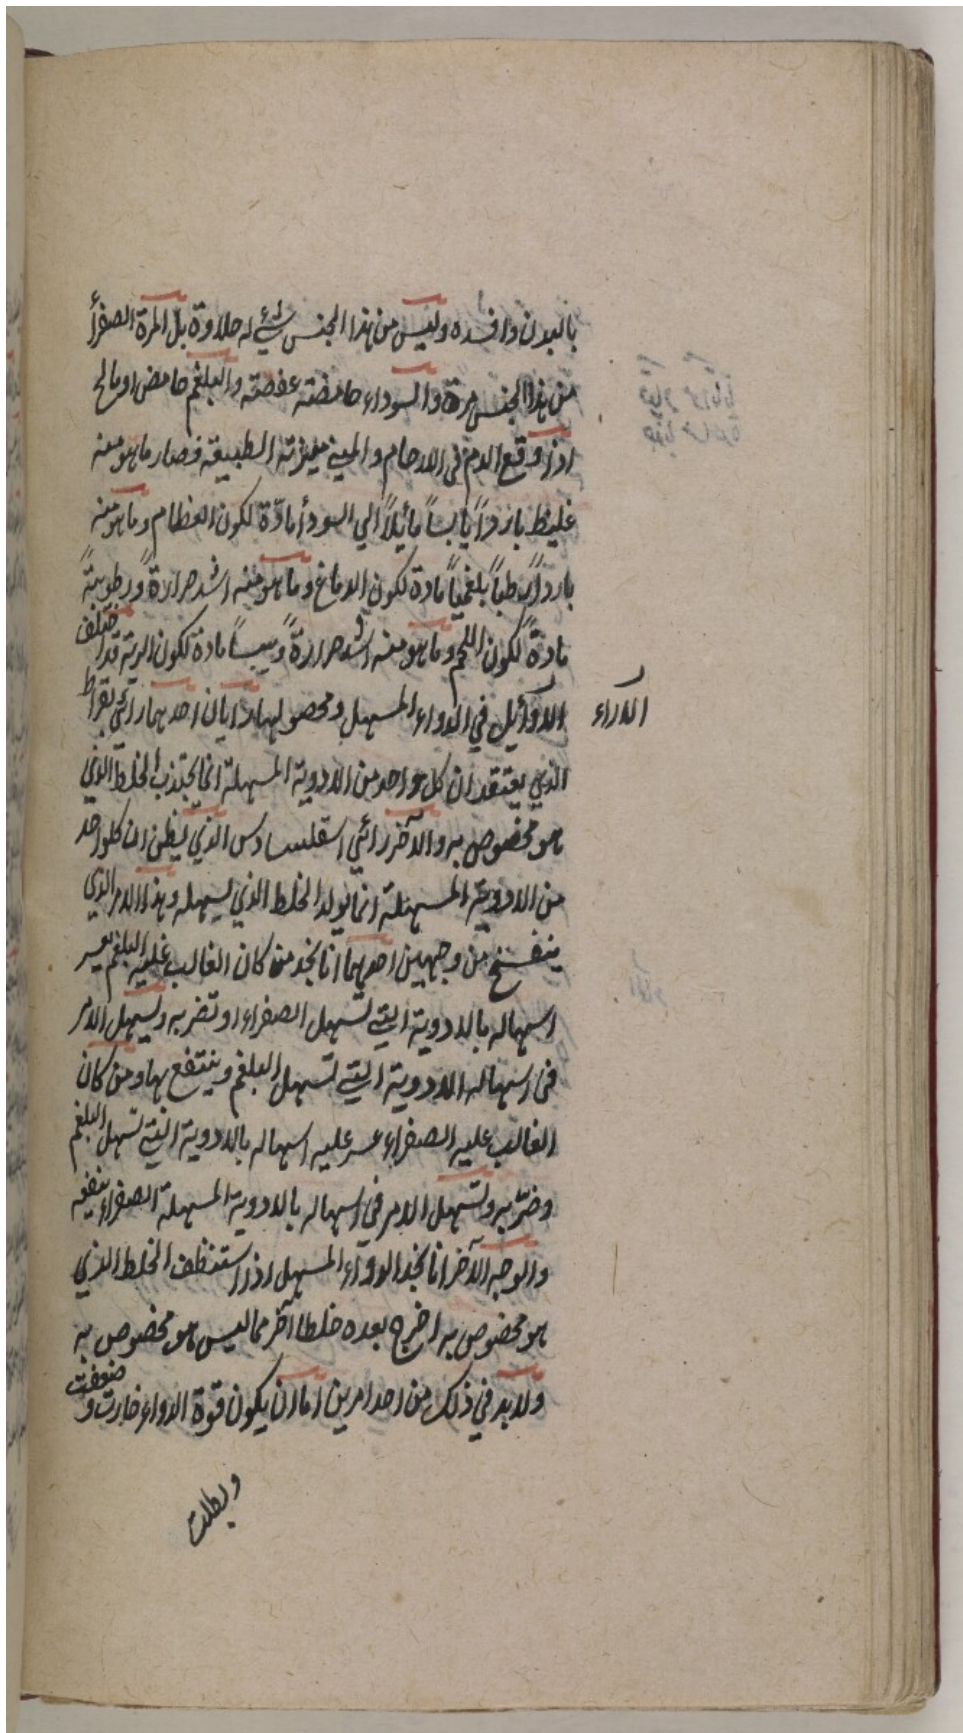 بالبدن وافسده وليس من هذا الجنس شيء له حلاوة بل المرة الصفرأ
من هذا الجنس مرة والسوداء حامضة عفصة والبلغم حامض او مالح
اذا وقع الدم في الارحام والمني ميزته الطبيعة فصار ما هو منه
غليظ بارداً يابساً مائيلاً الي السودأ مادة لكون العظام وما هو منه
بارداً رطباً بلغمياً مادة لكون الدماغ وما هو منه اشد حرارةً ورطوبةً
مادةً لكون اللحم وما هو منه اشد حرارةً ويبساً مادة لكون الرية قد اختلف
الاوائيل في الدواء المسهل ومحصولها رايان احدهما رائي بقراط
الاراء
الذي يعتقد ان كل واحد من الادوية المسهلة انما يجتذب الخلط الذي
هو مخصوص به والآخر رائي اسقلسادس الذي يظن ان كلواحد
من الادوية المسهلة انما يولد الخلط الذي يسهله وهذا الامر الذي
ينفسخ من وجهين احدهما انا نجد من كان الغالب عليه البلغم يعسر
اسهاله بالادوية التي تسهل الصفراء او تضر به ويسهل الامر
في اسهاله الادوية التي تسهل البلغم وينتفع بها ومن كان
الغالب عليه الصفراء عسر عليه اسهاله بالادوية التي تسهل البلغم
وضر به ويسهل الامر في اسهاله بالادوية المسهلة الصفراء ينفعه
والوجه الآخر انا نجد الدواء المسهل اذا استنظف الخلط الذي
هو مخصوص به اخرج بعده خلطا آخر مما ليس هو مخصوص به
ولابد في ذلك من احد امرين اما ان يكون قوة الدواء خارت و ضعفت
وبطلت